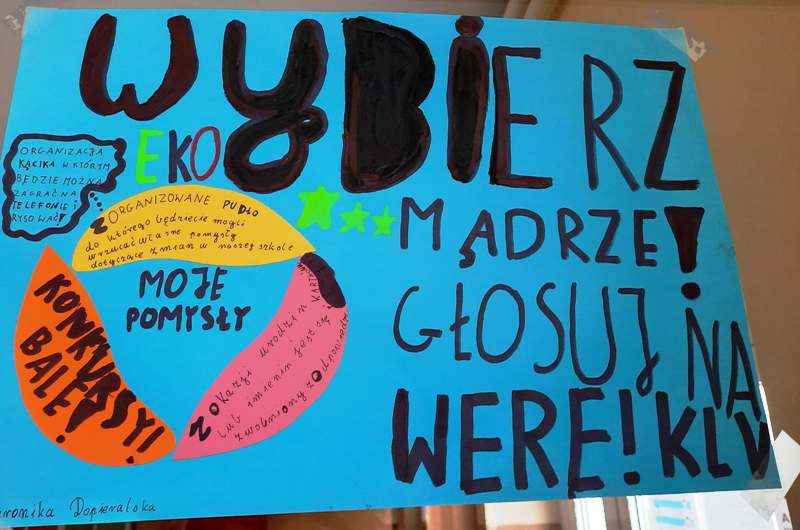 WYBIERZ
MĄDRZE!
GŁOSUJ NA
WERE! KL V
EKO
ORGANIZACJA
KĄCIKA W KTÓRYM
BĘDZIE MOŻNA
ZAGRAĆ NA
TELEFONIE I
RYSOWAĆ!
ZORGANIZOWANE PUDŁO
do którego będziecie mogli
wrzucać własne pomysły
dotyczące zmian w naszej szkole
MOJE
POMYSŁY
KONKURSSY!
BALE!
Z OKazji urodzin
lub imienin jest się
zwolniony z odpowiedzi
KART
eronika Dopieralska